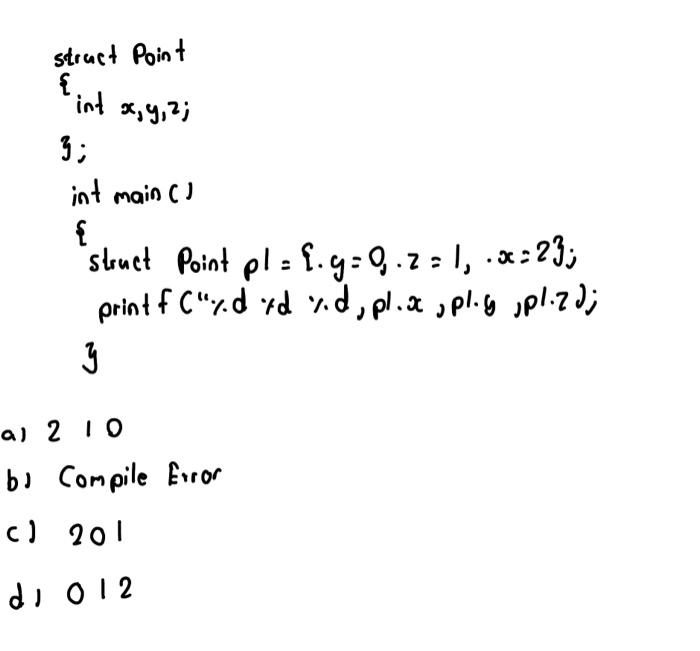 struct Point
{
int x,y,z;
};
int main()
{
struct Point p1 = {.y=0, .z = 1, .x=2};
printf ("%d %d %d, p1.x , p1.y ,p1.z);
}
a) 2 1 0
b) Compile Error
c) 2 0 1
d) 0 1 2